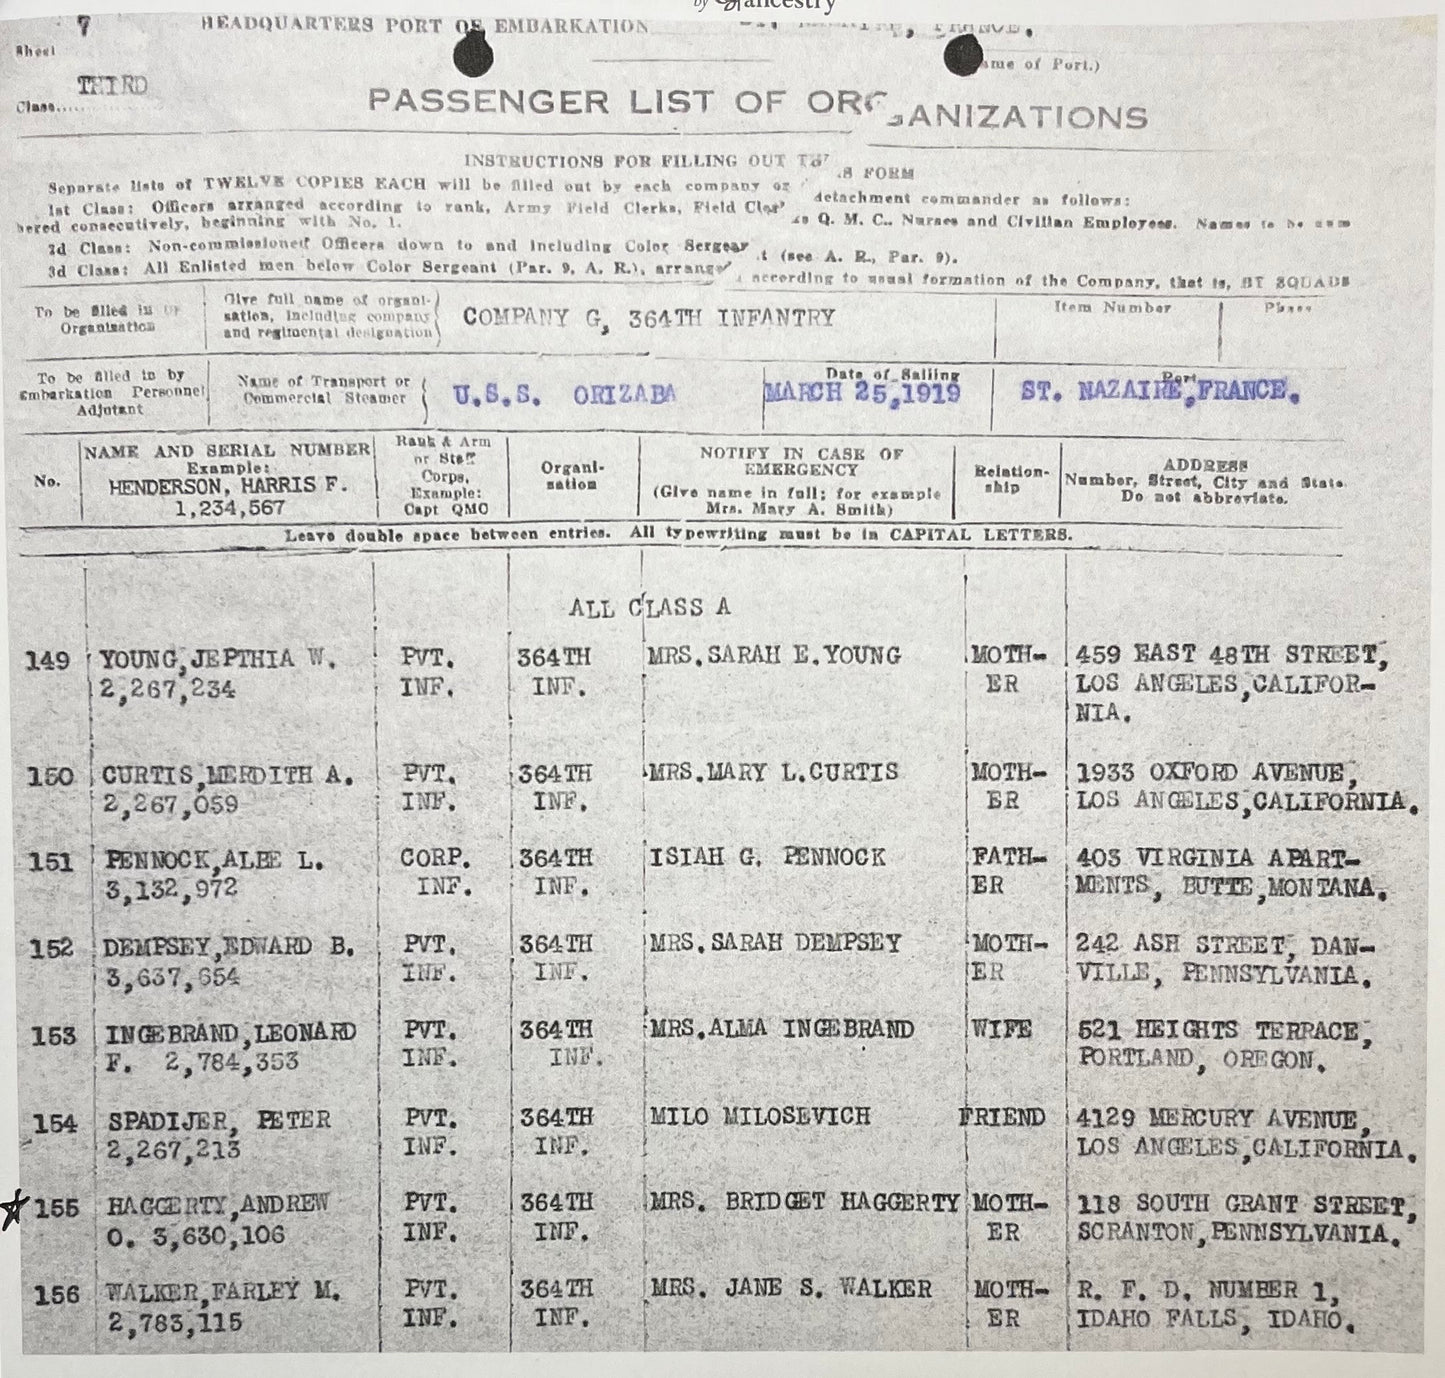 by ancestry
7 HEADQUARTERS PORT OF EMBARKATION FRANCE.
Sheet
(Name of Port.)
THIRD
Class.....
PASSENGER LIST OF ORGANIZATIONS
INSTRUCTIONS FOR FILLING OUT THIS FORM
Separate lists of TWELVE COPIES EACH will be filled out by each company or detachment commander as follows:
1st Class: Officers arranged according to rank, Army Field Clerks, Field Cler Q. M. C., Nurses and Civilian Employees. Names to be num
bered consecutively, beginning with No. 1.
2d Class: Non-commissioned Officers down to and including Color Sergeant (see A. R., Par. 9).
3d Class: All Enlisted men below Color Sergeant (Par. 9, A. R.), arrange according to usual formation of the Company, that is, BY SQUADS
To be filled in
Organization
Give full name of organi-
zation, including company
and regimental designation
COMPANY G, 364TH INFANTRY
Item Number
Phase
To be filled in by
Embarkation Personnel
Adjutant
Name of Transport or
Commercial Steamer
U.S.S. ORIZABA
Date of Sailing
MARCH 25,1919
Port
ST. NAZAIRE,FRANCE.
No.
NAME AND SERIAL NUMBER
Example:
HENDERSON, HARRIS F.
1,234,567
Rank & Arm
or Staff
Corps.
Example:
Capt QMC
Organi-
zation
NOTIFY IN CASE OF
EMERGENCY
(Give name in full; for example
Mrs. Mary A. Smith)
Relation-
ship
ADDRESS
Number, Street, City and State.
Do not abbreviate.
Leave double space between entries. All typewriting must be in CAPITAL LETTERS.
ALL CLASS A
149 YOUNG,JEPTHIA W. PVT. 364TH MRS.SARAH E.YOUNG MOTH- 459 EAST 48TH STREET,
2,267,234 INF. INF. ER LOS ANGELES,CALIFOR-
NIA.
150 CURTIS,MERDITH A. PVT. 364TH MRS.MARY L.CURTIS MOTH- 1933 OXFORD AVENUE,
2,267,059 INF. INF. ER LOS ANGELES,CALIFORNIA.
151 PENNOCK,ALBE L. CORP. 364TH ISIAH G. PENNOCK FATH- 403 VIRGINIA APART-
3,132,972 INF. INF. ER MENTS, BUTTE,MONTANA.
152 DEMPSEY,EDWARD B. PVT. 364TH MRS.SARAH DEMPSEY MOTH- 242 ASH STREET, DAN-
3,637,654 INF. INF. ER VILLE, PENNSYLVANIA.
153 INGEBRAND,LEONARD PVT. 364TH MRS.ALMA INGEBRAND WIFE 521 HEIGHTS TERRACE,
F. 2,784,353 INF. INF. PORTLAND, OREGON.
154 SPADIJER, PETER PVT. 364TH MILO MILOSEVICH FRIEND 4129 MERCURY AVENUE,
2,267,213 INF. INF. LOS ANGELES,CALIFORNIA.
155 HAGGERTY,ANDREW PVT. 364TH MRS. BRIDGET HAGGERTY MOTH- 118 SOUTH GRANT STREET,
O. 3,630,106 INF. INF. ER SCRANTON,PENNSYLVANIA.
156 WALKER,FARLEY M. PVT. 364TH MRS. JANE S. WALKER MOTH- R. F. D. NUMBER 1,
2,783,115 INF. INF. ER IDAHO FALLS, IDAHO.